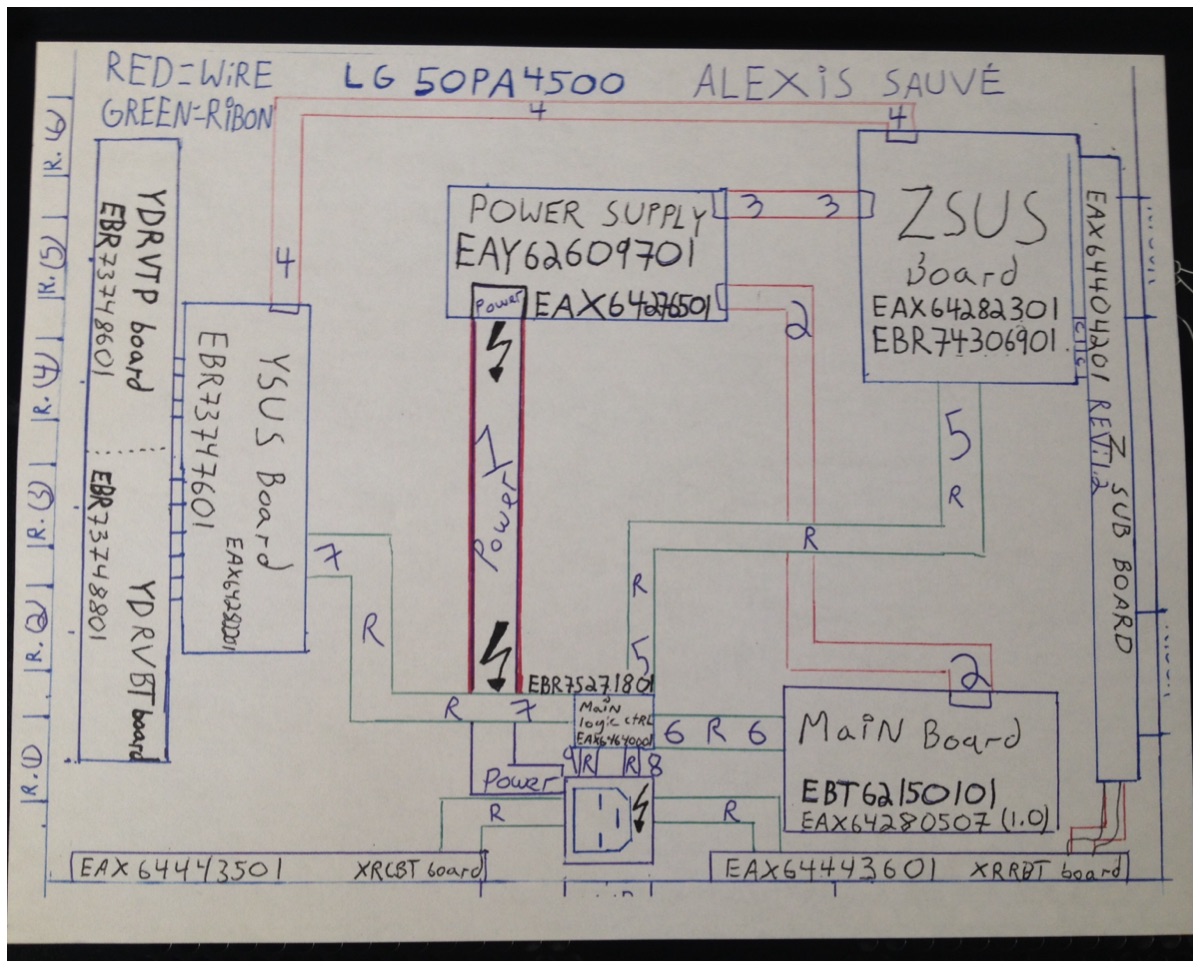 RED=WiRE
GREEN=RiBON
LG 50PA4500
ALEXiS SAUVÉ
4
4
4
R. (6)
R. (5)
R. (4)
R. (3)
R. (2)
R. (1)
YDRVTP board
EBR73748601
YDRVBT board
EBR73748801
YSUS Board
EBR73747601
EAX64280001
POWER SUPPLY
EAY62609701
Power
EAX64276501
3 3
2
ZSUS
Board
EAX64282301
EBR74306901
EAX64404201 REV:1.2
Z SUB BOARD
5
R
R
R
5
7
R
R 7
1
Power
EBR75271801
MaiN
logic ctRL
EAX64640001
6 R 6
2
MaiN Board
EBT62150101
EAX64280507 (1.0)
9 R R 8
Power
R
R
EAX64443501 XRCBT board
EAX64443601 XRRBT board